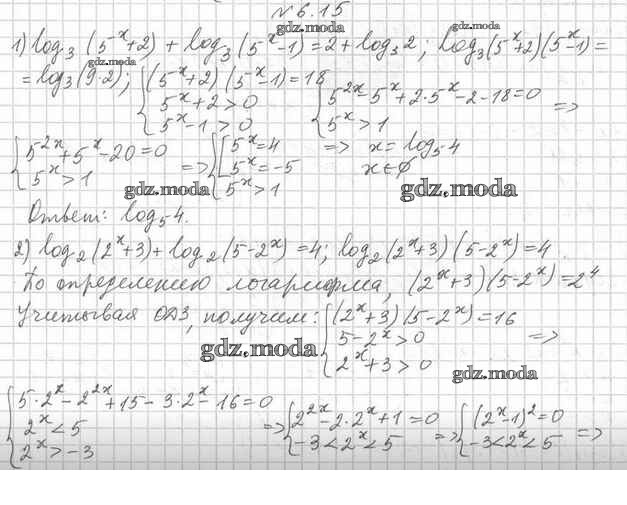 № 6.15
gdz.moda gdz.moda
1) log₃ (5ˣ+2) + log₃ (5ˣ-1) = 2 + log₃ 2; log₃(5ˣ+2)(5ˣ-1) =
gdz.moda
= log₃(9·2); { (5ˣ+2)(5ˣ-1) = 18
5ˣ+2 > 0
5ˣ-1 > 0
{ 5²ˣ-5ˣ+2·5ˣ-2-18=0
5ˣ > 1 =>
{ 5²ˣ+5ˣ-20=0
5ˣ > 1 =>
{ [ 5ˣ=4
5ˣ=-5
5ˣ > 1
=> x = log₅4
x ∈ ∅
gdz.moda gdz.moda
Ответ: log₅4.
2) log₂(2ˣ+3)+log₂(5-2ˣ) = 4; log₂(2ˣ+3)(5-2ˣ) = 4.
По определению логарифма, (2ˣ+3)(5-2ˣ)=2⁴
Учитывая ОДЗ, получим: { (2ˣ+3)(5-2ˣ)=16
5-2ˣ > 0 =>
2ˣ+3 > 0
gdz.moda gdz.moda
{ 5·2ˣ-2²ˣ+15-3·2ˣ-16=0
2ˣ < 5
2ˣ > -3
=> { 2²ˣ-2·2ˣ+1=0
-3<2ˣ<5
=> { (2ˣ-1)²=0
-3<2ˣ<5 =>